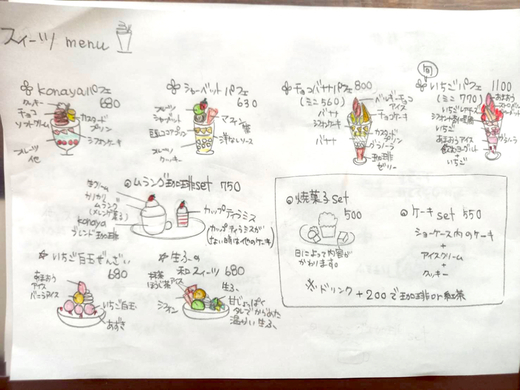 スイーツ menu
konayaパフェ
680
クッキー
チョコ
ソフトクリーム
カスタード
プリン
シフォンケーキ
フルーツ
他
シャーベットパフェ
630
フルーツ
シャーベット
フルーツ
クッキー
チョコバナナパフェ 800
(ミニ560)
バナナ
シフォンケーキ
バナナ
ベルギーチョコ
アイス
チョコケーキ
カスタード
プリン
グラノーラ
珈琲
ゼリー
旬
いちごパフェ 1100
(ミニ 770)
いちご
あまおうアイス
飲むヨーグルト
いちご
グラノーラ
ムラング珈琲set 750
生クリーム
カリカリ
ムラング
(メレンゲ菓子)
konaya
ブレンド珈琲
カップティラミス
(カップティラミスが
ない時は他のケーキ)
焼菓子set
500
日によって内容が
かわります。
ケーキset 550
ショーケース内のケーキ
+
アイスクリーム
+
クッキー
※ドリンク +200で珈琲or紅茶
いちご白玉ぜんざい
680
あまおう
アイス
バニラアイス
いちご白玉
あずき
生ふの
和スイーツ 680
抹茶
ほうじ茶アイス
生ふ
甘じょっぱい
タレでからめた
温かい生ふ